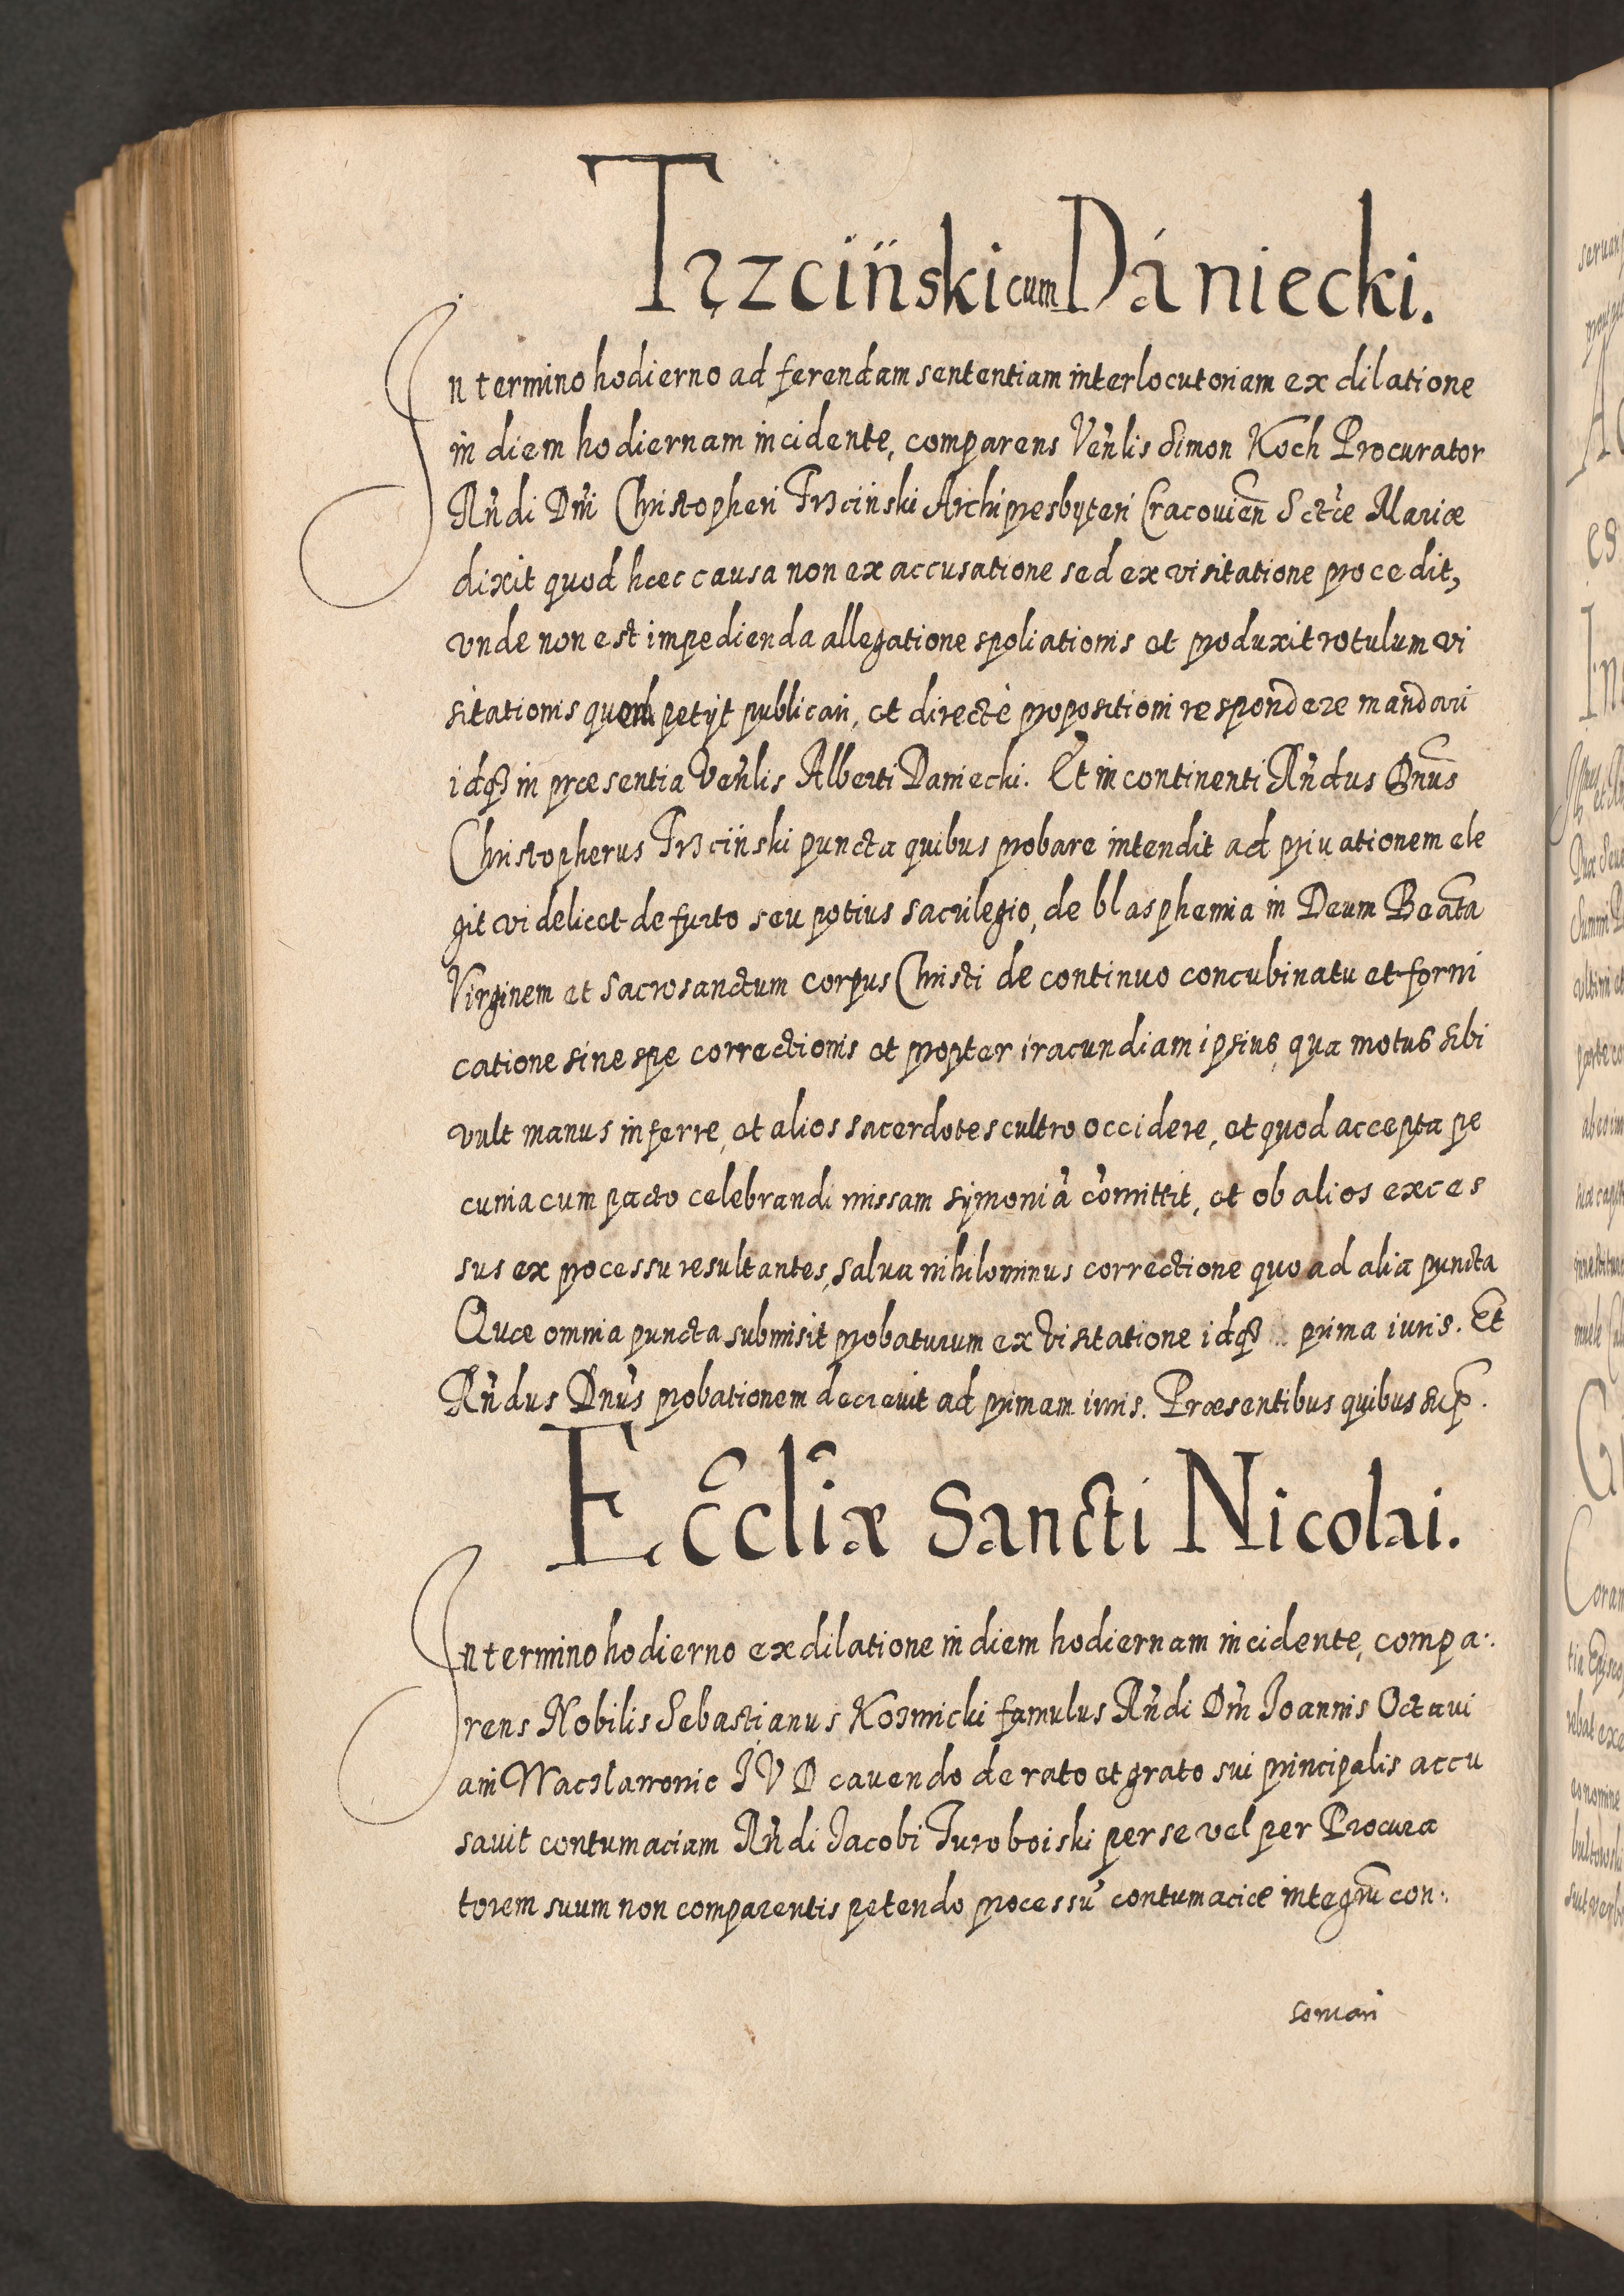 Trzciński cum Dániecki.
In termino hodierno ad ferendam sententiam interlocutoriam ex dilatione
in diem hodiernam incidente, comparens Venlis Simon Koch Procurator
Rndi Dni Christopheri Trzciński Archipresbyteri Cracovien Sctæ Mariæ
dixit quod hæc causa non ex accusatione sed ex visitatione procedit,
vnde non est impedienda allegatione spoliationis et produxit rotulum vi
sitationis quem petijt publicari, et directè propositioni respondere mandari
idq3 in præsentia Venlis Alberti Daniecki. Et in continenti Rndus Dnus
Christopherus Trzciński puncta quibus probare intendit ad privationem ele
git videlicet de furto seu potius sacrilegio, de blasphemia in Deum Beata
Virginem et Sacrosanctum Corpus Christi de continuo concubinatu et forni
catione sine spe correctionis et propter iracundiam ipsius, qua motus sibi
vult manus inferre, et alios sacerdotes cultro occidere, et quod accepta pe
cunia cum pacto celebrandi missam symoniã cõmittit, et ob alios exces
sus ex processu resultantes, salva nihilominus correctione quo ad alia puncta
Quæ omnia puncta submisit probaturum ex visitatione idq3 prima iuris. Et
Rndus Dnus probationem decrevit ad primam iuris. Præsentibus quibus sup.
Eccliæ Sancti Nicolai.
In termino hodierno ex dilatione in diem hodiernam incidente, compa:.
rens Nobilis Sebastianus Kozmicki famulus Rndi Dni Joannis Octavi
ani Waczlawowic JVD cavendo de rato et grato sui principalis accu
savit contumaciam Rndi Jacobi Turoboiski per se vel per Procura
torem suum non comparentis petendo processũ contumaciæ integrũ con:.
servari